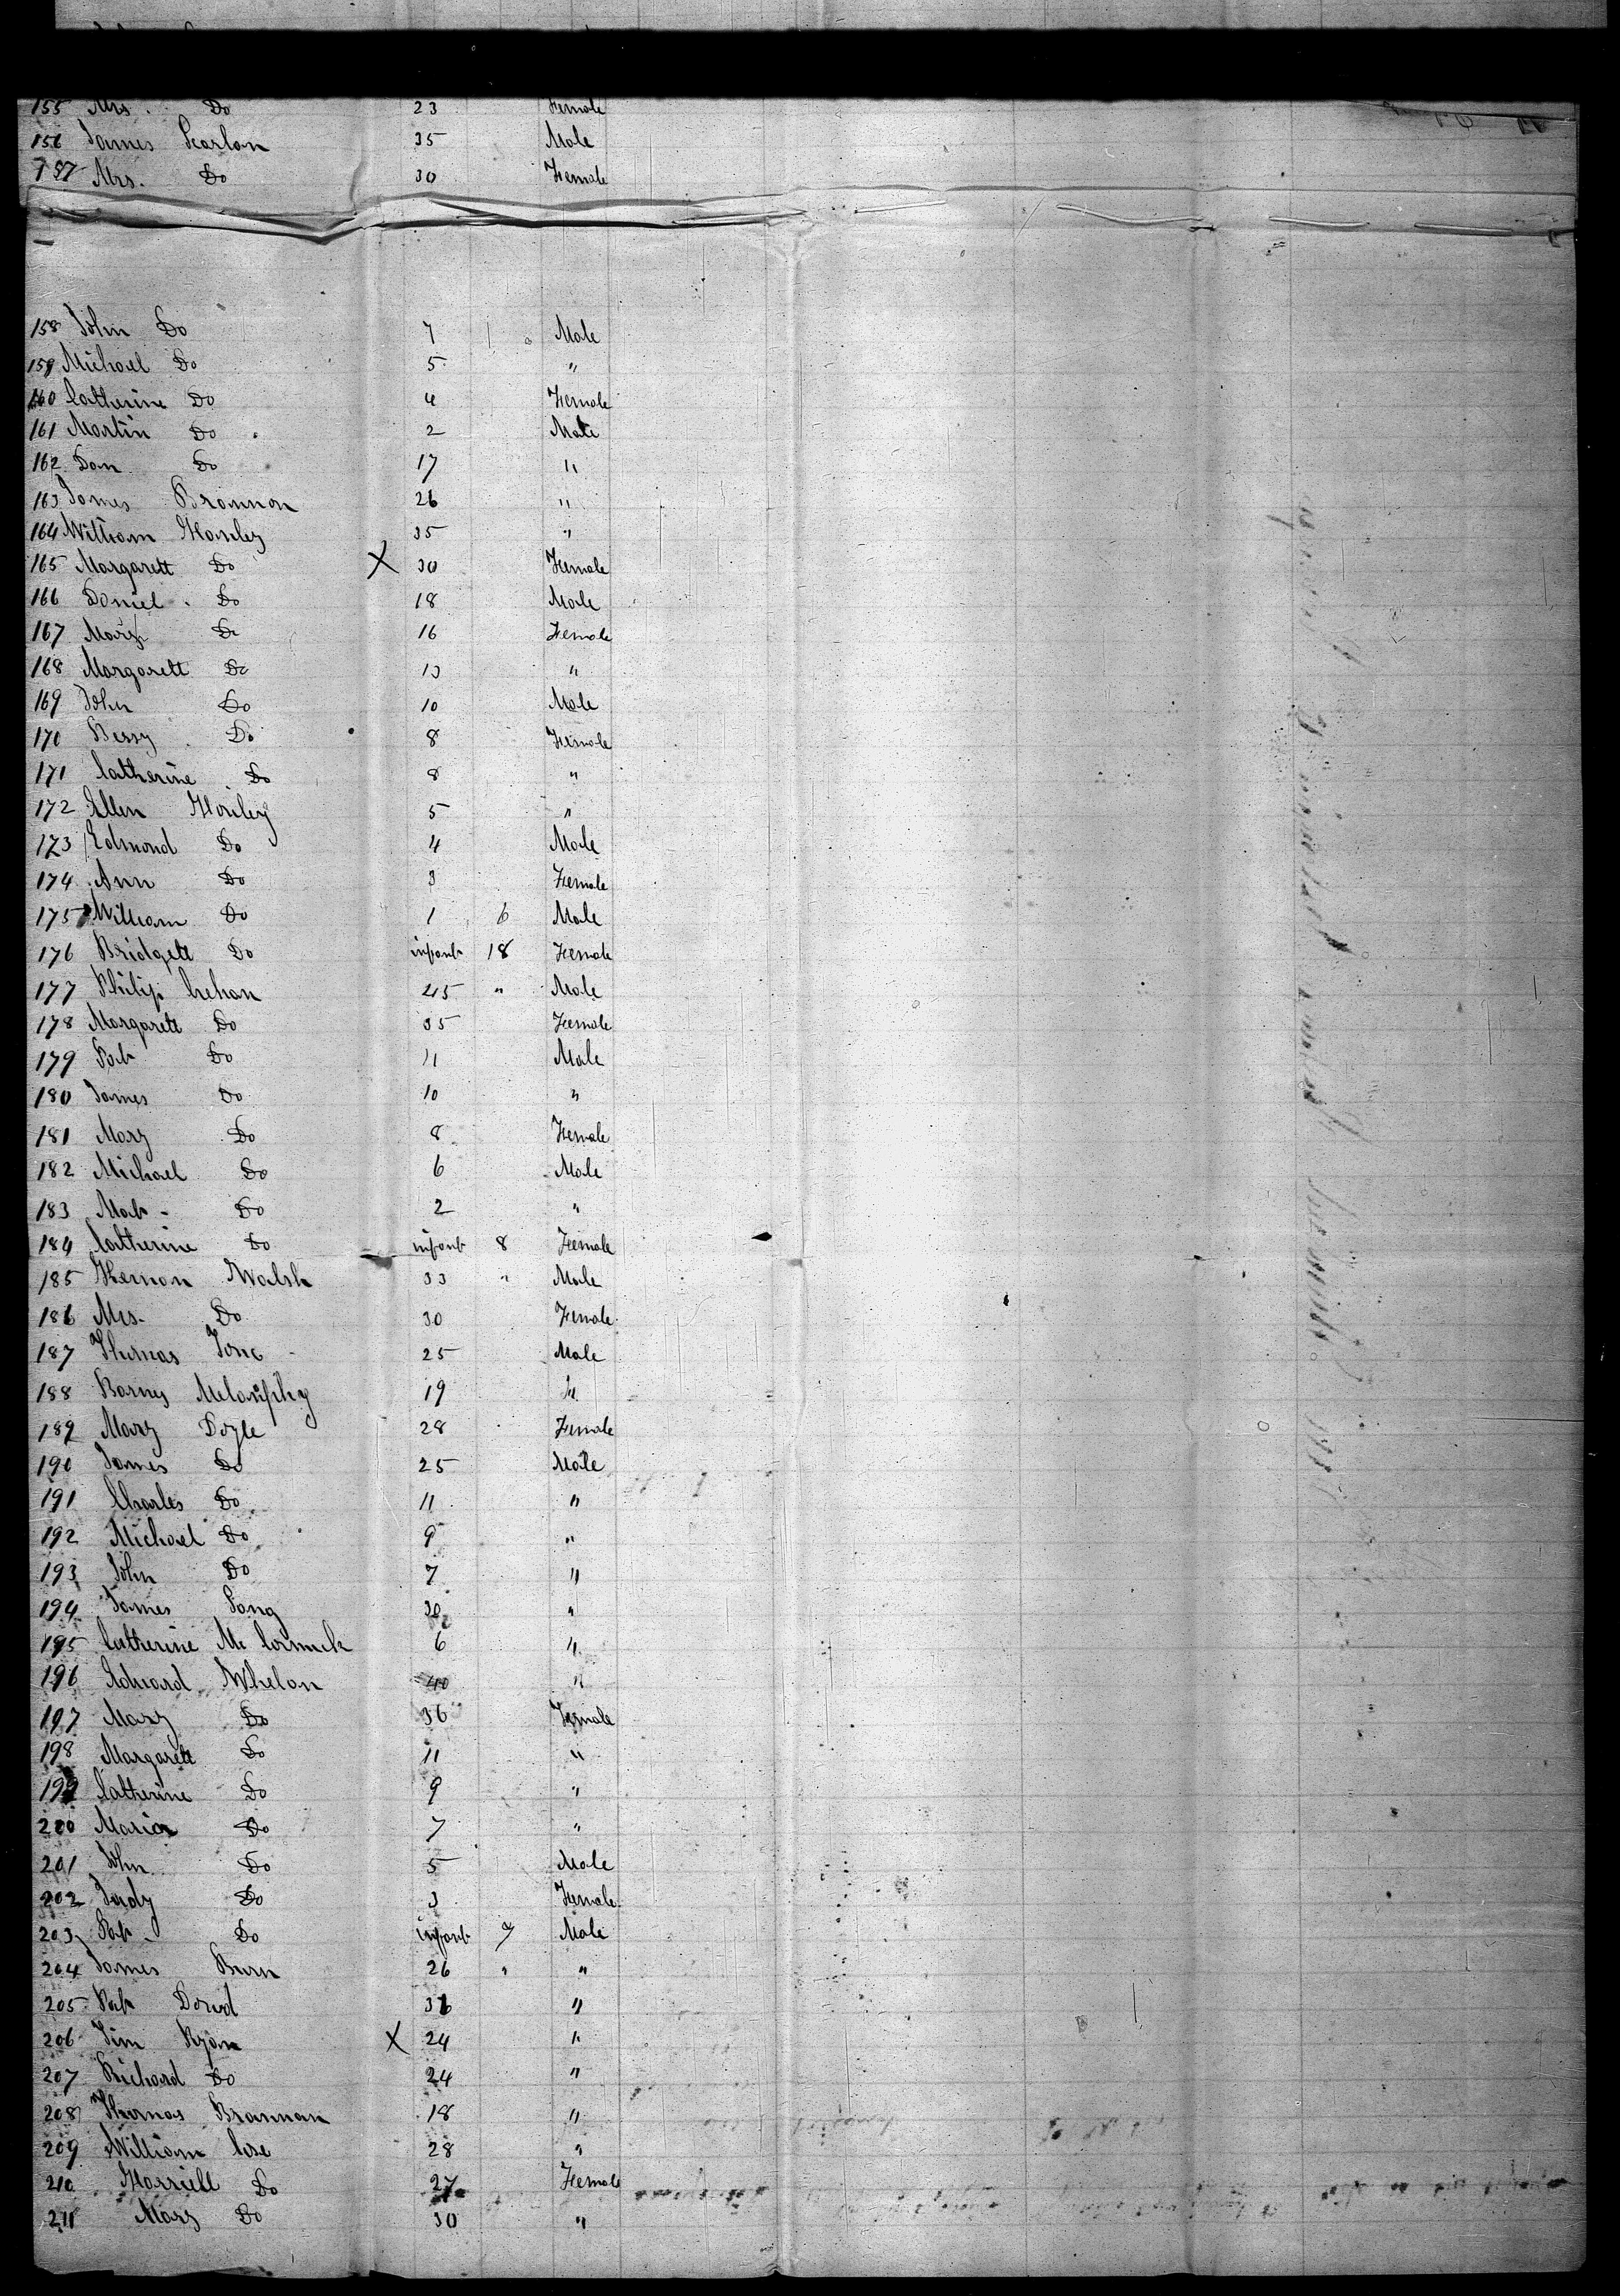 155 Mrs. Do 23 Female
156 James Scarlan 35 Male
157 Mrs. Do 30 Female
158 John Do 7 Male
159 Michael Do 5 "
160 Catherine Do 4 Female
161 Martin Do 2 Male
162 Dan Do 17 "
163 James Brannon 26 "
164 William Hanley 35 "
165 Margarett Do X 30 Female
166 Daniel Do 18 Male
167 Mary Do 16 Female
168 Margarett Do 13 "
169 John Do 10 Male
170 Bessy Do 8 Female
171 Catherine Do 8 "
172 Ellen Hanley 5 "
173 Edmond Do 4 Male
174 Ann Do 3 Female
175 William Do 1 6 Male
176 Bridgett Do infant 18 Female
177 Philip Crehan 45 " Male
178 Margarett Do 35 Female
179 Pat Do 11 Male
180 James Do 10 "
181 Mary Do 8 Female
182 Michael Do 6 Male
183 Mat Do 2 "
184 Catherine Do infant 8 Female
185 Walsh 33 " Male
186 Mrs. Do 30 Female
187 Thomas 25 Male
188 Barney 19 "
189 Mary Doyle 28 Female
190 James Do 25 Male
191 Charles Do 11 "
192 Michael Do 9 "
193 John Do 7 "
194 James Lang 30 "
195 Catherine Mc Cormick 6 "
196 Edward Whelan 40 "
197 Mary Do 36 Female
198 Margarett Do 11 "
199 Catherine Do 9 "
200 Maria Do 7 "
201 John Do 5 Male
202 Judy Do 3 Female
203 Pat Do infant 7 Male
204 James Burn 26 " "
205 Pat Dowd 36 "
206 Tim Ryan X 24 "
207 Richard Do 24 "
208 Thomas Brannan 18 "
209 William 28 "
210 Harriett Do 27 Female
211 Mary Do 30 "